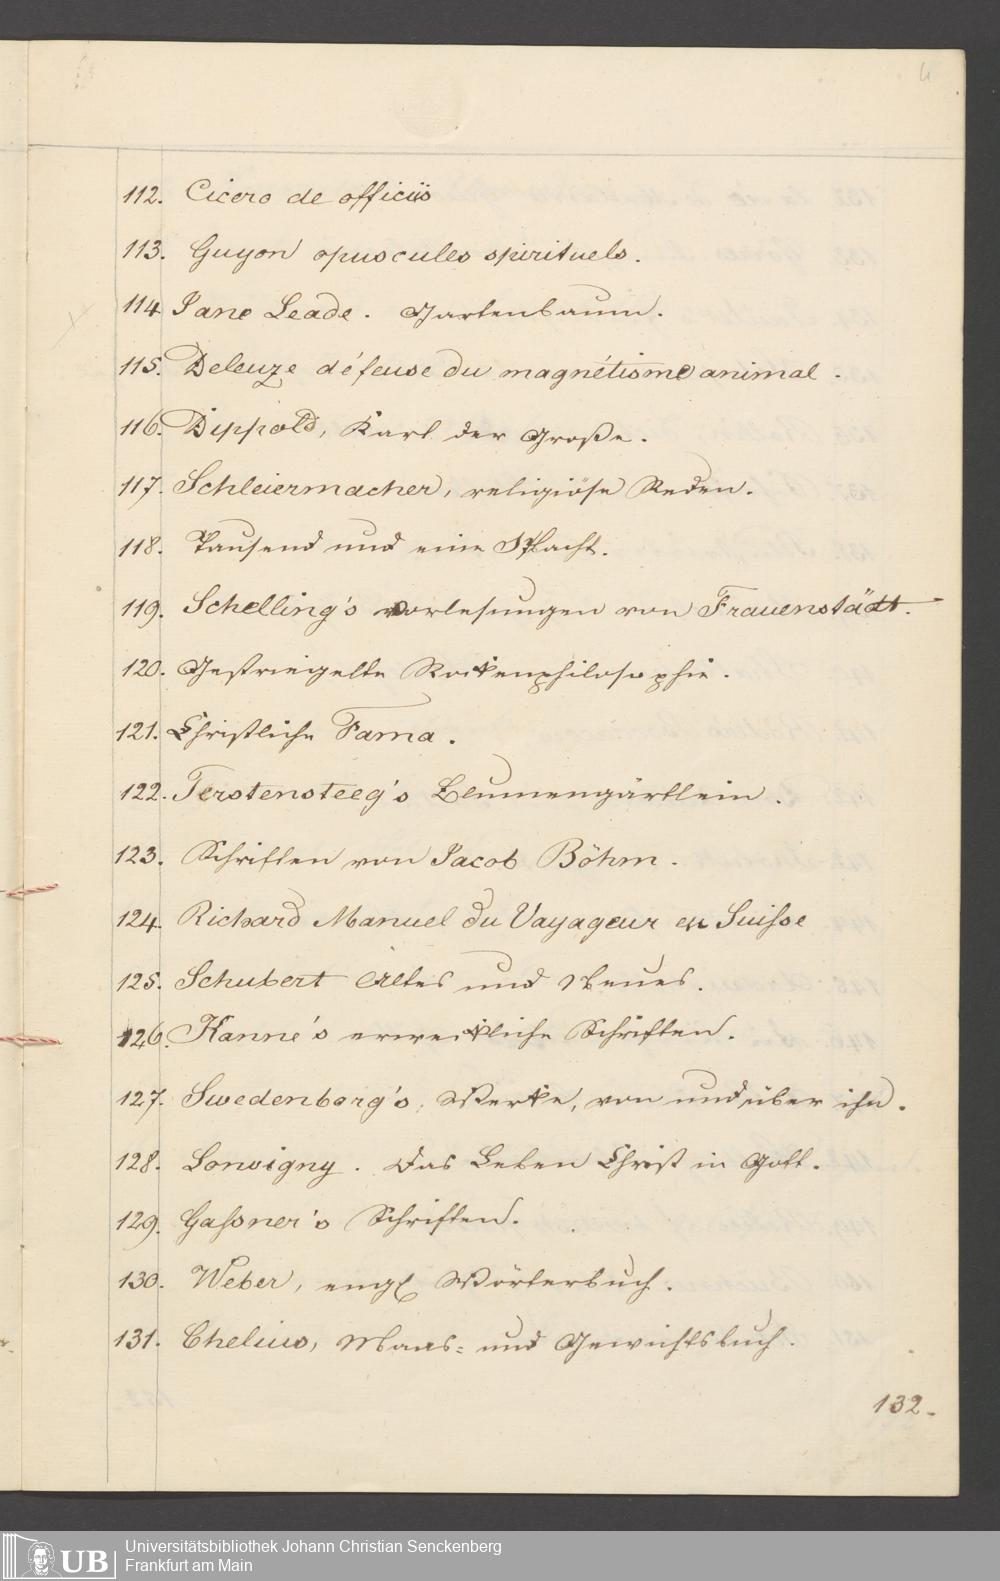 4
112. Cicero de officiis
113. Guyon opuscules spirituels.
114 Jane Leade. Gartenbaum.
115. Deleuze défense du magnétisme animal.
116. Dippold, Karl der Große.
117. Schleiermacher, religiöse Reden.
118. Tausend und eine Nacht.
119. Schelling's vorlesungen von Frauenstädt.
120. Gestriegelte Rockenphilosophie.
121. Christliche Fama.
122. Terstensteeg's Blumengärtlein.
123. Schriften von Jacob Böhm.
124. Richard Manuel du Vayageur en Suisse
125. Schubert Altes und Neues.
126. Kanne's erweckliche Schriften.
127. Swedenborg's, Werke, von und über ihn.
128. Louvigny. Das Leben Christ in Gott.
129. Gassner's Schriften.
130. Weber, engl Wörterbuch.
131. Chelius, Maas- und Gewichtsbuch.
132.
UB Universitätsbibliothek Johann Christian Senckenberg
Frankfurt am Main